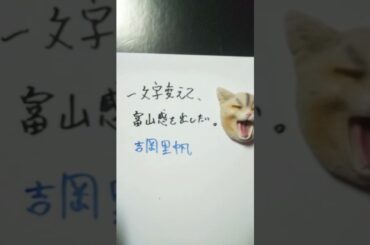 一文字変えて、
富山感を出したい。
吉岡里帆